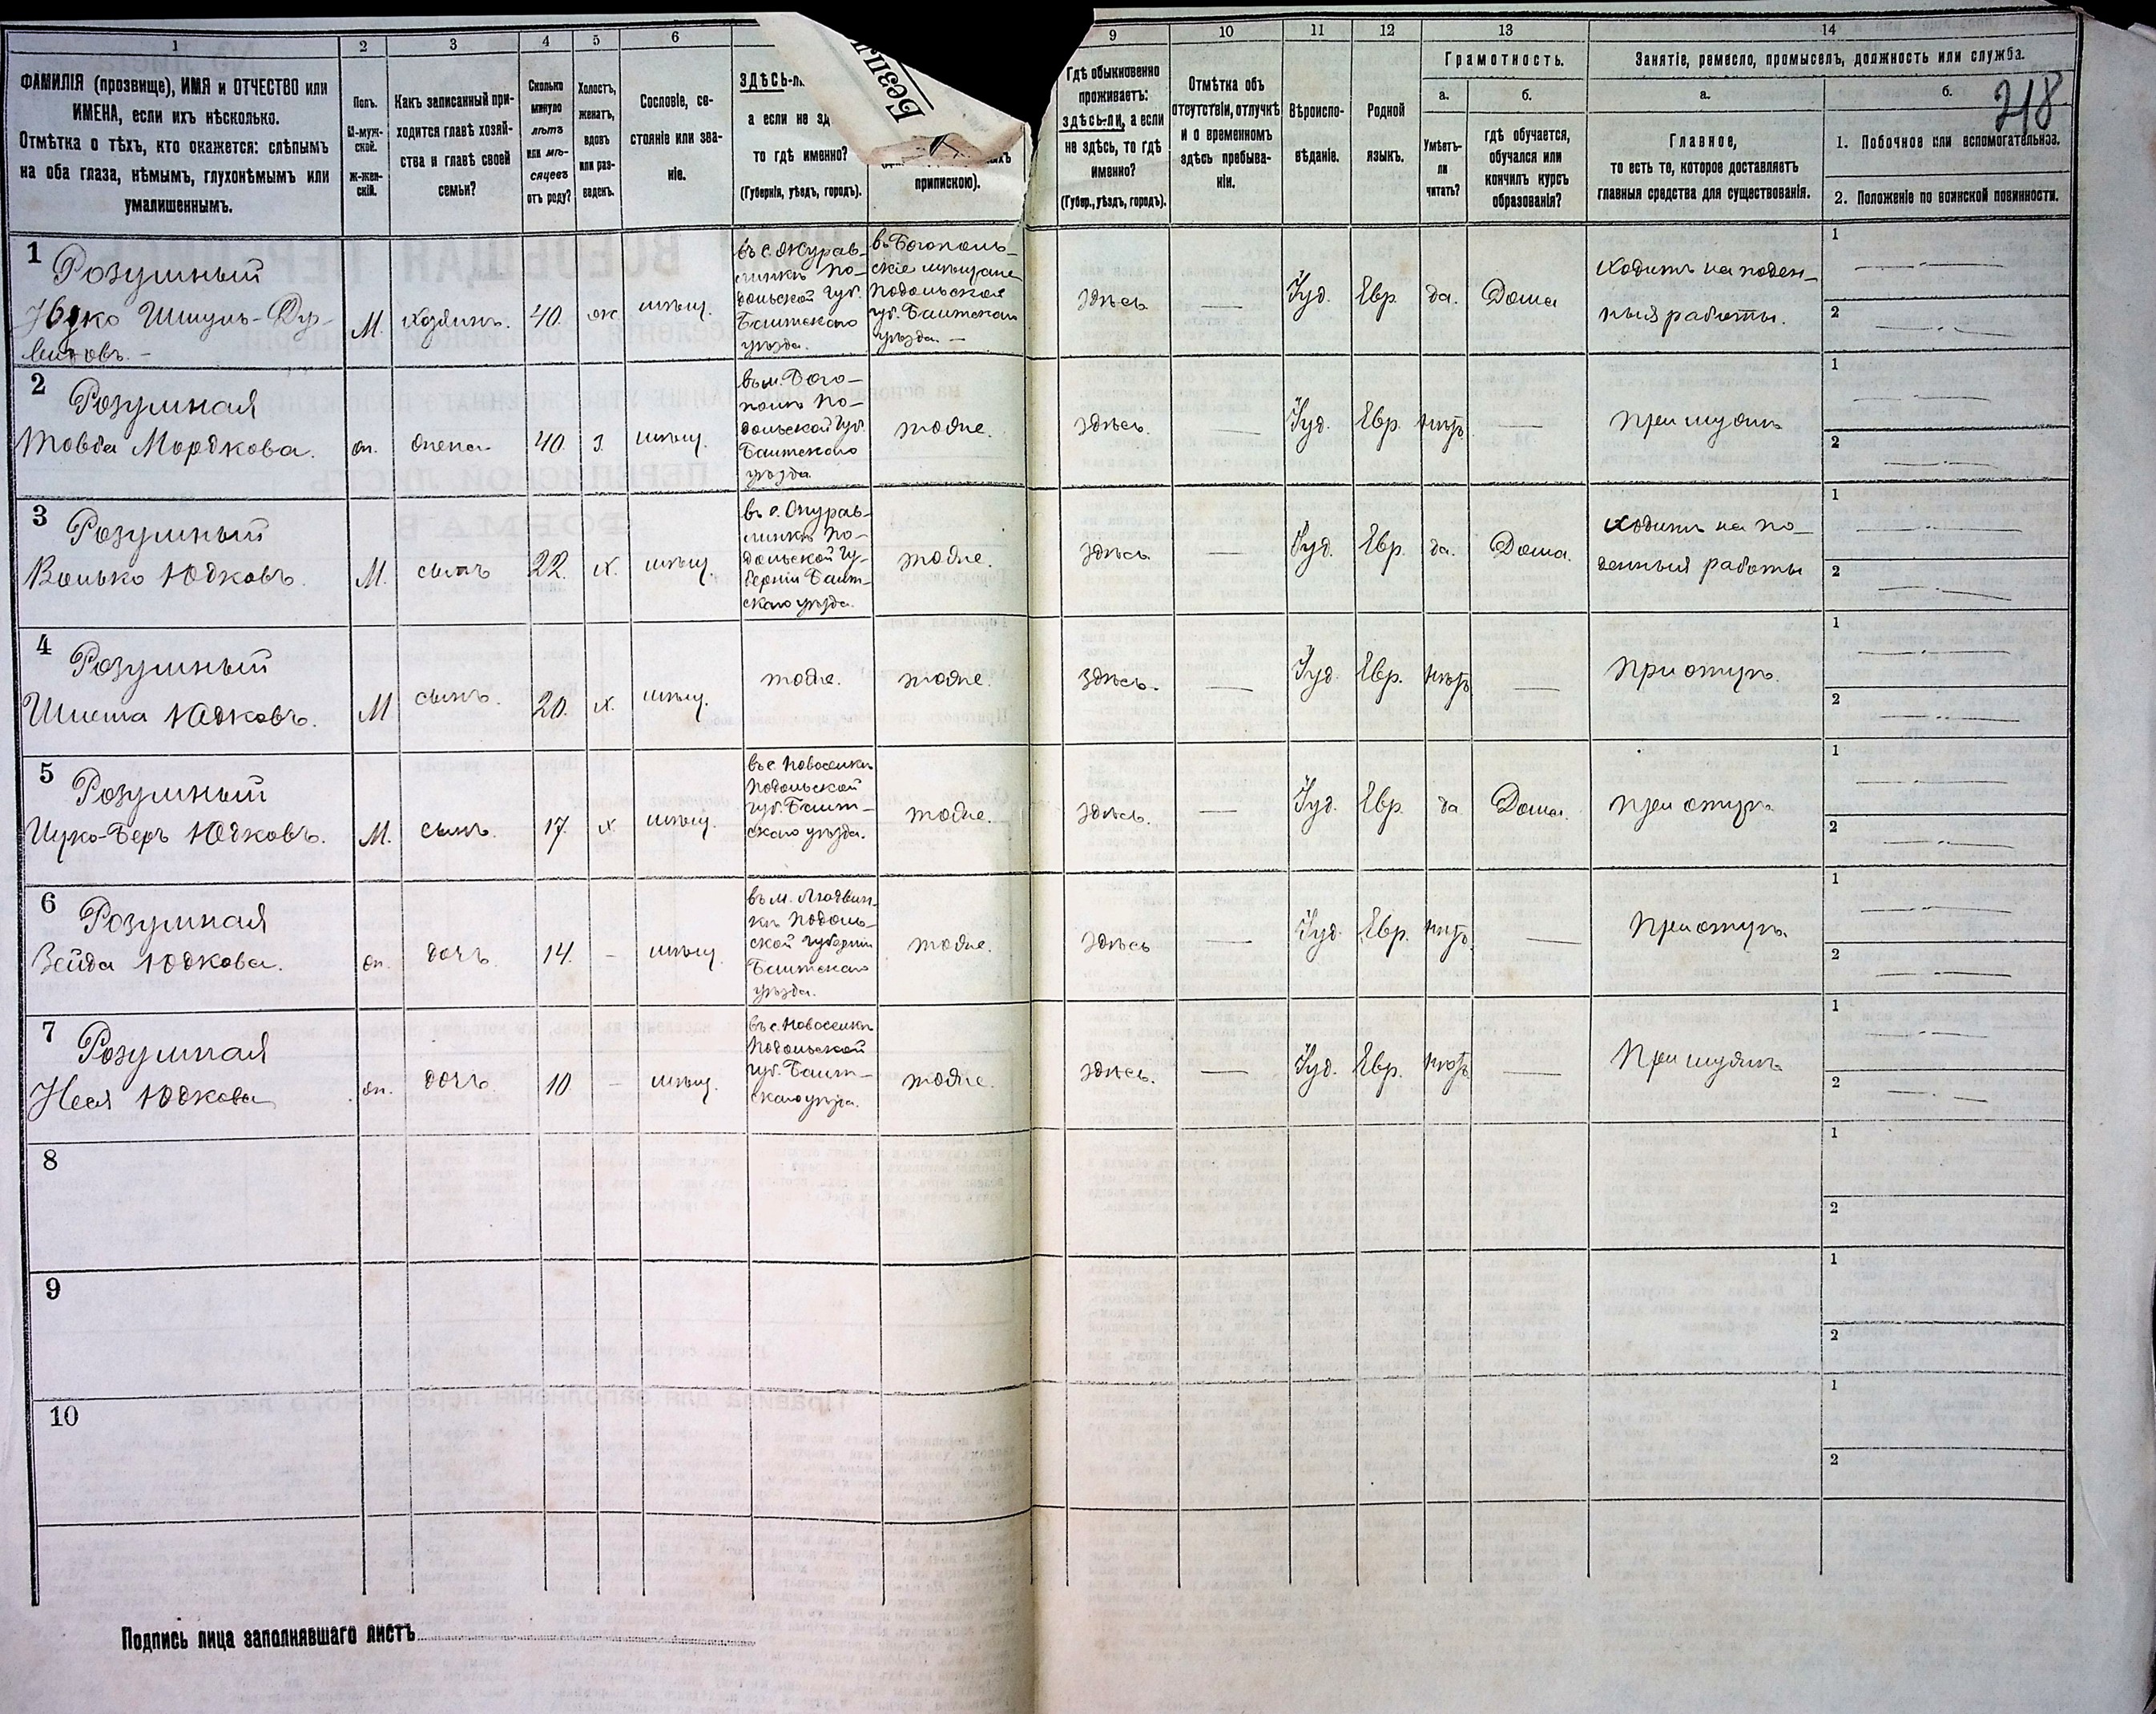 1 2 3 4 5 6 9 10 11 12 13 14
218
ФАМИЛІЯ (прозвище), ИМЯ и ОТЧЕСТВО или
ИМЕНА, если ихъ нѣсколько.
Отмѣтка о тѣхъ, кто окажется: слѣпымъ
на оба глаза, нѣмымъ, глухонѣмымъ или
умалишеннымъ.
Полъ.
М-муж-
ской.
ж-жен-
скій.
Какъ записанный при-
ходится главѣ хозяй-
ства и главѣ своей
семьи?
Сколько
минуло
лѣтъ
или мѣ-
сяцевъ
отъ роду?
Холостъ,
женатъ,
вдовъ
или раз-
веденъ.
Сословіе, со-
стояніе или зва-
ніе.
ЗДѢСЬ-л
а если не зд
то гдѣ именно?
(Губернія, уѣздъ, городъ).
припискою).
Гдѣ обыкновенно
проживаетъ:
здѣсь-ли, а если
не здѣсь, то гдѣ
именно?
(Губер., уѣздъ, городъ).
Отмѣтка объ
отсутствіи, отлучкѣ
и о временномъ
здѣсь пребыва-
ніи.
Вѣроиспо-
вѣданіе.
Родной
языкъ.
Грамотность.
а.
Умѣетъ-
ли
читать?
б.
гдѣ обучается,
обучался или
кончилъ курсъ
образованія?
Занятіе, ремесло, промыселъ, должность или служба.
а.
Главное,
то есть то, которое доставляетъ
главныя средства для существованія.
б.
1. Побочное или вспомогательное.
2. Положеніе по воинской повинности.
1
Розумный
Шмуль-
М. хозяинъ. 40. ж. мѣщ.
въ с. Журав-
линкѣ По-
дольской губ.
Балтскаго
уѣзда.
въ Богополь-
скіе мѣщане
Подольской
губ. Балтскаго
уѣзда. —
здѣсь — Iуд. Евр. да. Дома
Ходитъ на поден-
ныя работы.
1 —
2 —
2
Розумная
Товба Мордкова.
ж. жена 40. з. мѣщ.
въ м. Бого-
полѣ По-
дольской губ.
Балтскаго
уѣзда.
тоже. здѣсь. — Iуд. Евр. нѣтъ —
При мужѣ
1 —
2 —
3
Розумный
Волько Юдковъ.
М. сынъ 22. х. мѣщ.
въ с. Журав-
линкѣ По-
дольской гу-
берніи Балт-
скаго уѣзда.
тоже. здѣсь — Iуд. Евр. да. Дома.
Ходитъ на по-
денныя работы
1 —
2 —
4
Розумный
Юдковъ.
М сынъ. 20. х. мѣщ. тоже. тоже. здѣсь. — Iуд. Евр. нѣтъ —
При отцѣ.
1 —
2 —
5
Розумный
Ицко-Беръ Юдковъ.
М. сынъ. 17. х мѣщ.
въ с. Новоселкѣ
Подольской
губ. Балт-
скаго уѣзда.
тоже. здѣсь. — Iуд. Евр. да Дома.
при отцѣ
1 —
2 —
6
Розумная
Зейда Юдкова.
ж. дочь. 14. - мѣщ.
въ м. Людвин-
кѣ Подоль-
ской губерніи
Балтскаго
уѣзда.
тоже. здѣсь — Iуд. Евр. нѣтъ. —
При отцѣ
1 —
2 —
7
Розумная
Неся Юдкова
ж. дочь. 10 - мѣщ.
въ с. Новоселкѣ
Подольской
губ. Балт-
скаго уѣзда.
тоже. здѣсь. — Iуд. Евр. нѣтъ —
При мужѣ
1 —
2 —
8
1
2
9
1
2
10
1
2
Подпись лица заполнявшаго листъ